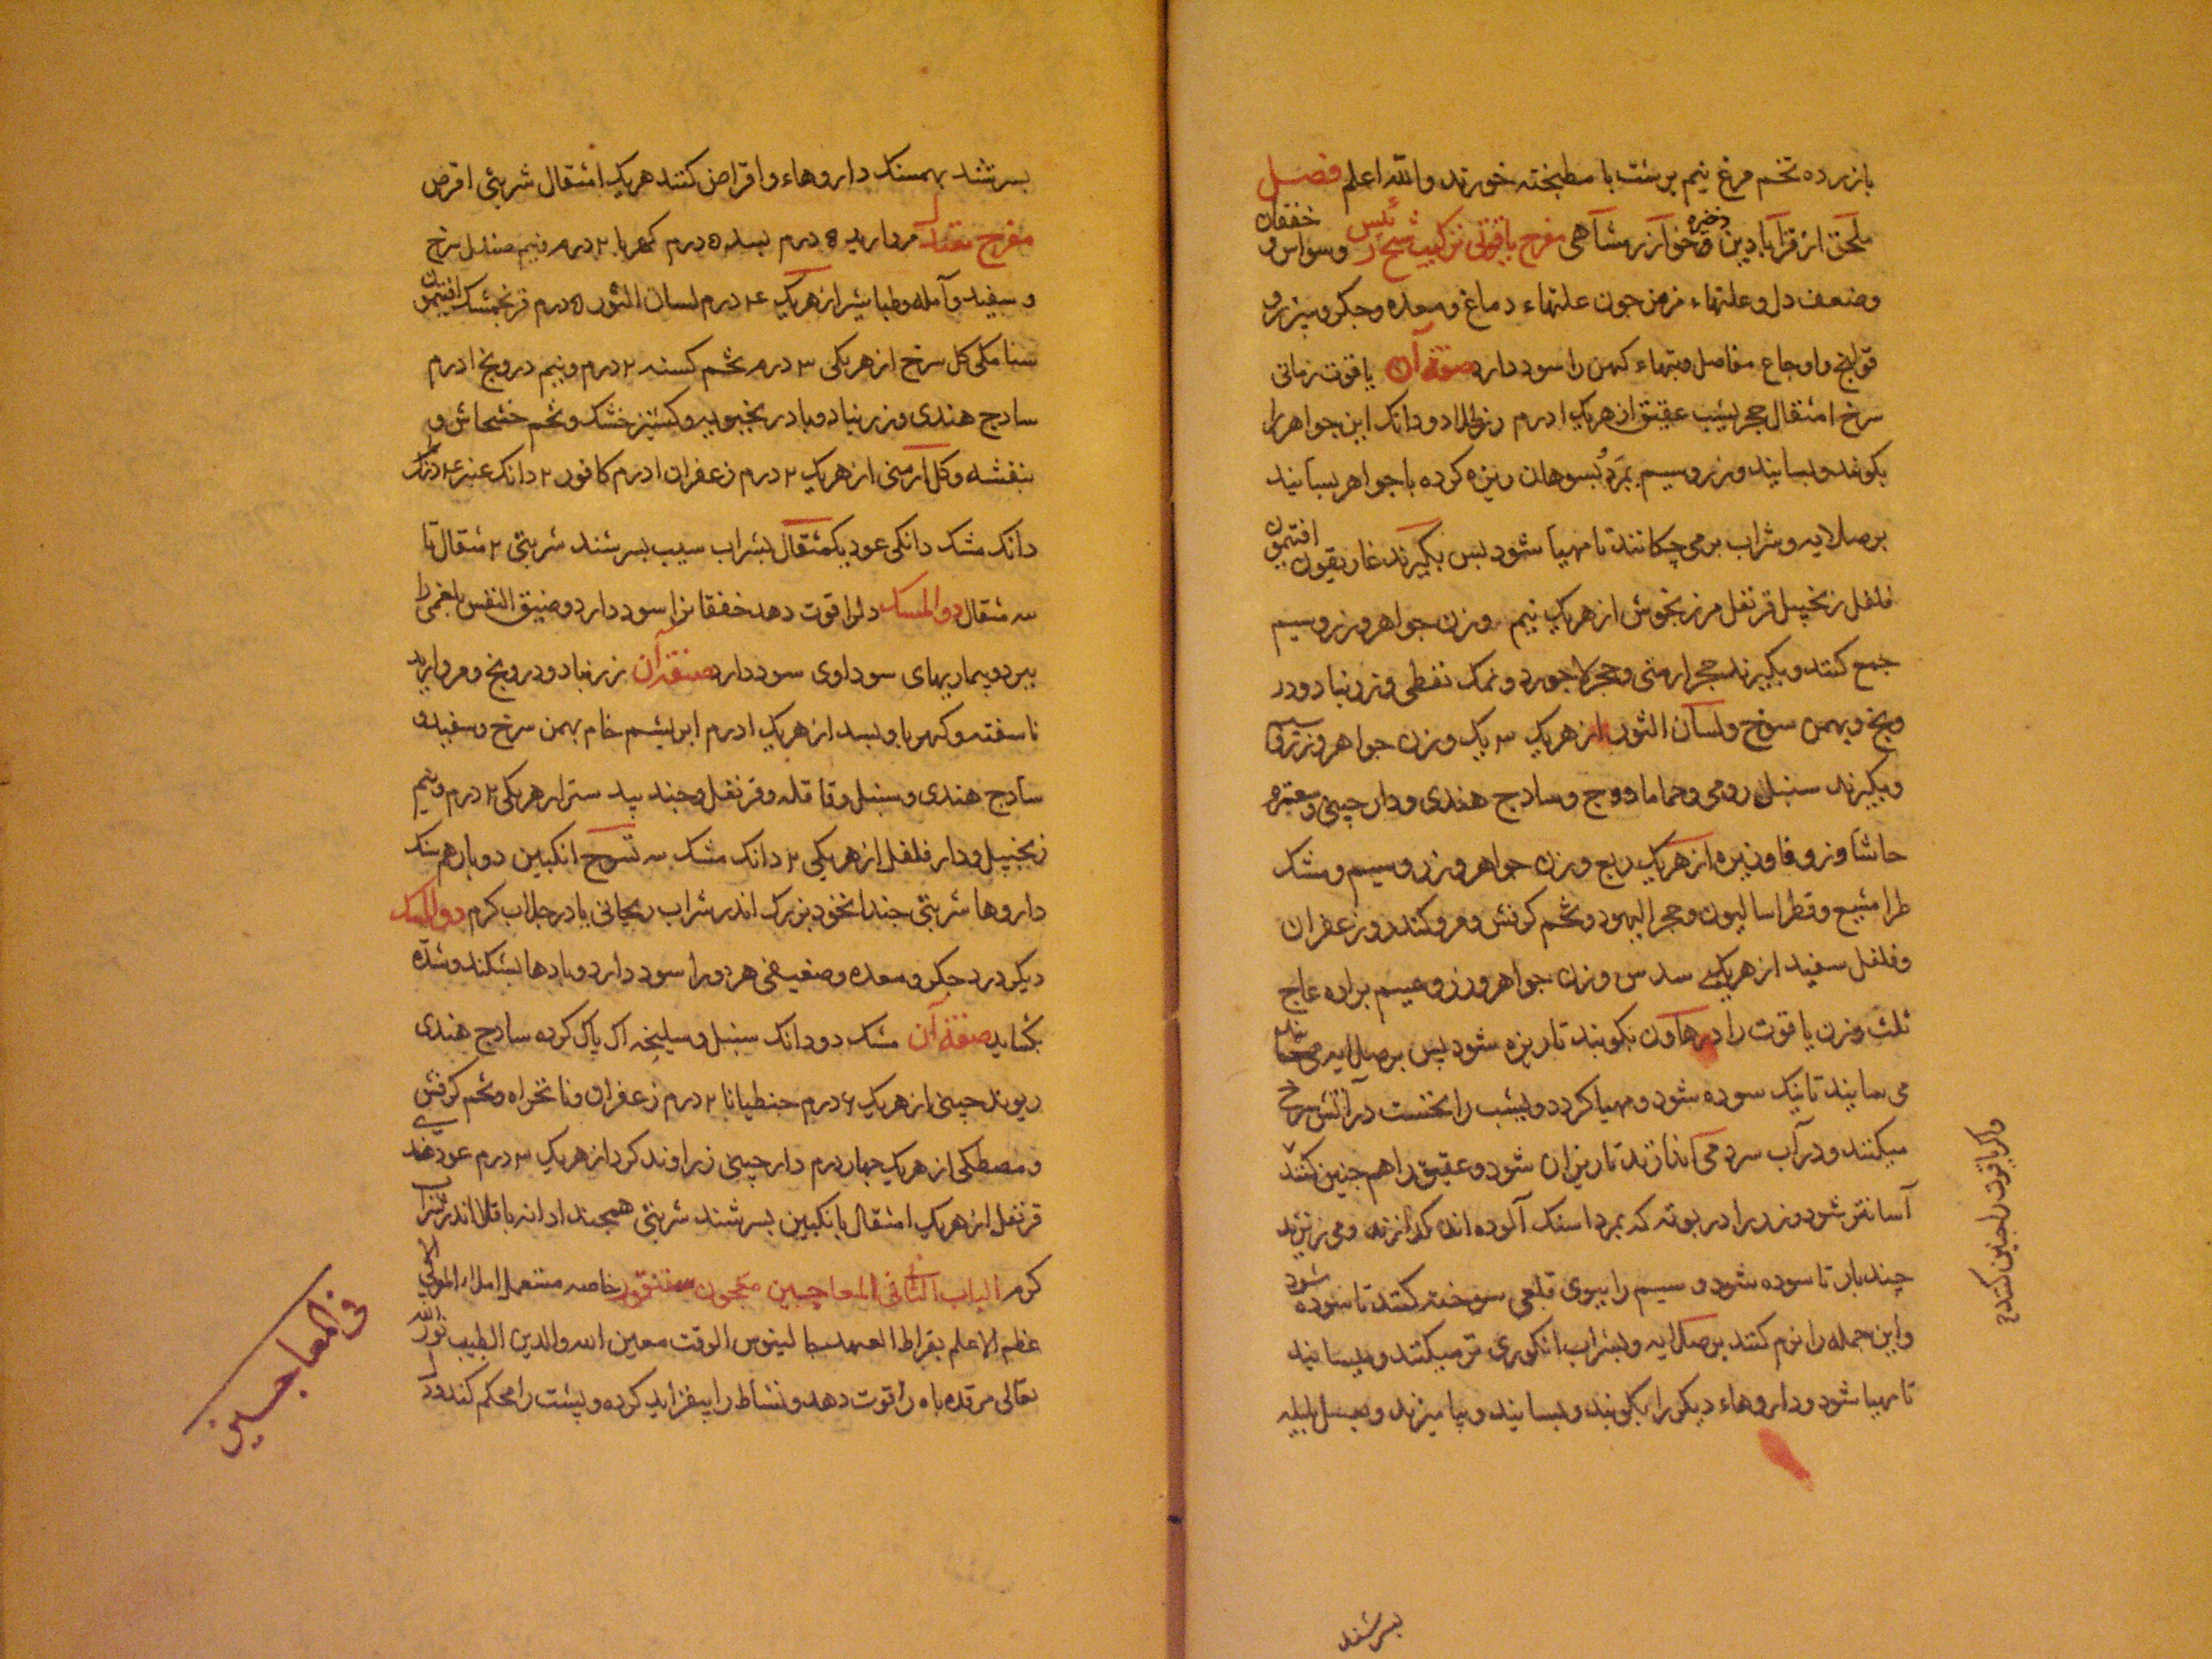 بازرده تخم مرغ نیم برشت با مطبخته خورند والله اعلم فصل
ملحق از قرابادین ذخیره مفرح یاقوتی ترکیب شیخ رئیس وسواس و خفقان
وضعف دل و علتهاء مزمن جون علتهاء دماغ و معده و جکر و سپرز و
قولنج واوجاع مفاصل وتبهاء کهن را سود دارد صفة آن یاقوت رمانی
سرخ امثقال حجر یشب عقیق از هریک ادرم دودانک این جواهر را
بکوبند و بسایند وزر وسیم بمرد بسوهان ریزه کرده با جواهر بسایند
بر صلایه وشراب برمی چکانند تا مهیا شود بس بکیرند غاریقون افتیمون
فلفل زنجبیل قرنفل مرزنجوش از هریک نیم وزن جواهر وزر وسیم
جمع کنند و بکیرند حجر ارمنی و حجر لاجورد و نمک نفطی وزرنباد ودر
ونج وبهمن سرخ ولسان الثور از هریک ۳ یک وزن جواهر وزر
وبکیرند سنبل رومی وحماما ووج وسادج هندی ودارچینی وصعتر
حاشا وزوفا وزیره از هریک ربع وزن جواهر وزر وسیم ومشک
طرامشیع وفطراسالیون وحجر الیهود وتخم کرفس ومر وکندر وزعفران
وفلفل سفید از هریکی سدس وزن جواهر وزر وسیم براده عاج
ثلث وزن یاقوت را در هاون بکوبند تا ریزه شود پس بر صلایه
می سایند تا نیک سوده شود ومهیا کردد ویشب را نخست در آتش سرخ
میکنند ودر آب سرد می اندازند تا ریزان شود وعقیق را هم جنین کنند
آسانتر شود وزر را در بوته که بمرداسنک آلوده اند کدازند ومی ریزند
چند بار تا سوده شود و سیم را ببوی قلعی سوخته کنند تا سوده شود
واین جمله را نرم کنند بر صلایه وبشراب انکوری تر میکنند ومیسایند
تا مهیا شود وداروهاء دیکر را بکوبند وبسایند وبیامیزند وبعسل بلیله
واکر یاقوت را جنین کنند
بسرشند
بسرشند بهمسنک داروهاء واقراص کنند هریک امثقال شربتی اقرص
مفرح معتدل مروارید ۵ درم بسد ۵ درم کهربا ۲ درم ونیم صندل سرخ
و سفید وآمله وطباشیر از هریک ۴ درم لسان الثور ۵ درم فرنجمشک افتیمون
سنا مکی کل سرخ از هریکی ۳ درم تخم کسنه ۲ درم ونیم درونج ادرم
سادج هندی وزرنباد وبادرنجبویه وکشنیز خشک وتخم خشخاش و
بنفشه وکل ارمنی از هریک ۲ درم زعفران ادرم کافور ۲ دانک عنبر ۴
دانک مشک دانکی عود یکمثقال بشراب سیب بسرشند شربتی ۲ مثقال تا
سه مثقال دوالمسک دلرا قوت دهد خفقانرا سود دارد وضیق النفس بلغمی را
ببرد وبیماریهای سوداوی سود دارد صفة آن زرنباد ودرونج ومروارید
ناسفته وکهربا وبسد از هریک ادرم ابریشم خام بهمن سرخ وسفید و
سادج هندی وسنبل وقاقله وقرنفل وجند بید ستر از هریکی ۲ درم ونیم
زنجبیل ودار فلفل از هریکی ۲ دانک مشک سه تسوج انکبین دوبار همسنک
داروها شربتی جند نخود بزرک اندر شراب ریحانی یا در جلاب کرم دوالمسک
دیکر درد جکر ومعده وضعیفی هردو را سود دارد وبادها بشکند وسده
بکشاید صفة آن مشک دودانک سنبل وسلیخه پاک کرده سادج هندی
ریوند جینی از هریک ۶ درم جنطیانا ۲ درم زعفران ونانخواه وتخم کرفس
ومصطکی از هریک جهاردرم دارچینی زراوند کرد از هریک ۳ درم عود هندی
قرنفل از هریک امثقال بانکبین بسرشند شربتی همجند ادانه باقلا اندر شراب
کرم الباب الثانی المعاجین معجون سقنقور خاصه مستعمل املاء المولی
اعظم الاعلم بقراط العهد جالینوس الوقت معین الله والدین الطبیب نور الله
تعالی مرقده باه را قوت دهد ونشاط را بیفزاید کرده وپشت را محکم کند
فی المعاجین